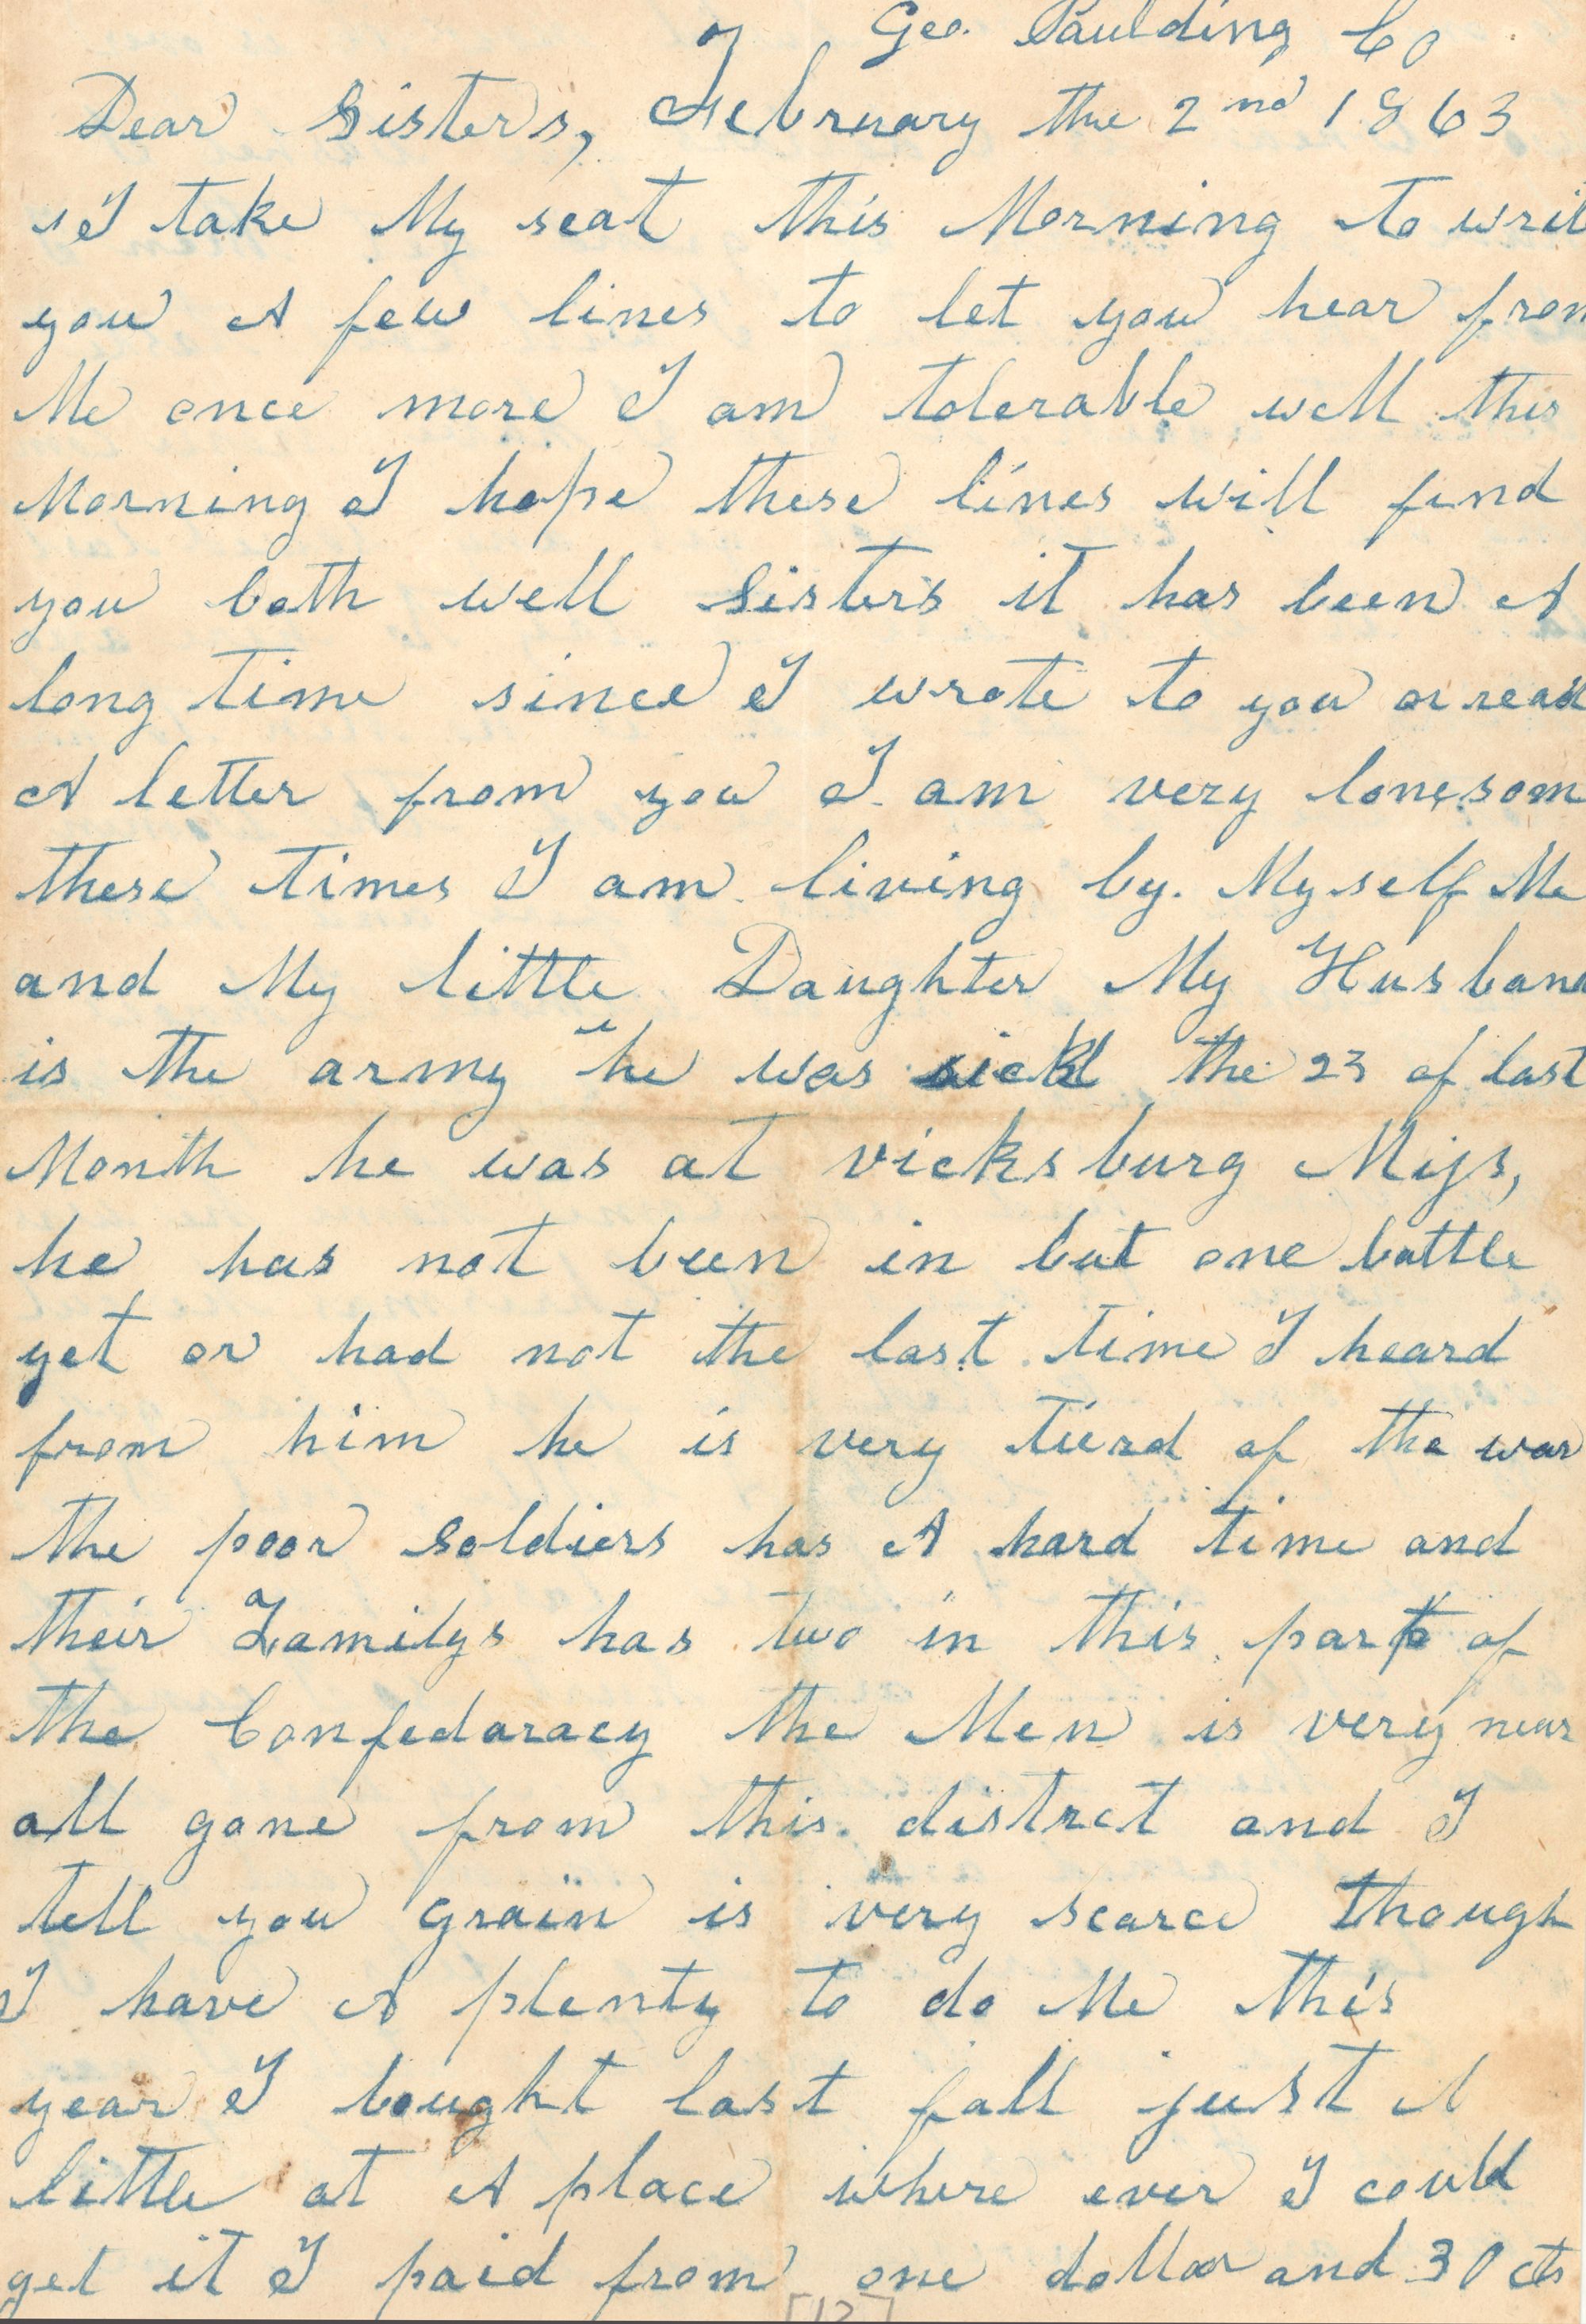 Geo. Paulding Co
Dear Sisters, February the 2nd 1863
I take My seat this Morning to writ
you A few lines to let you hear from
Me once more I am tolerable well this
Morning I hope these lines will find
you both well Sisters it has been A
long time since I wrote to you or read
A letter from you I am very lonesom
these times I am living by. Myself Me
and My little Daughter My Husband
is the army he was sick the 23 of last
Month he was at vicksburg Miss,
he has not been in but one battle
yet or had not the last time I heard
from him he is very tierd of the war
the poor soldiers has A hard time and
their Familys has two in this part of
the Confedaracy the Men is very near
all gone from this district and I
tell you grain is very scarce though
I have A plenty to do Me this
year I bought last fall just A
little at A place where ever I could
get it I paid from one dollar and 30 cts
[12]